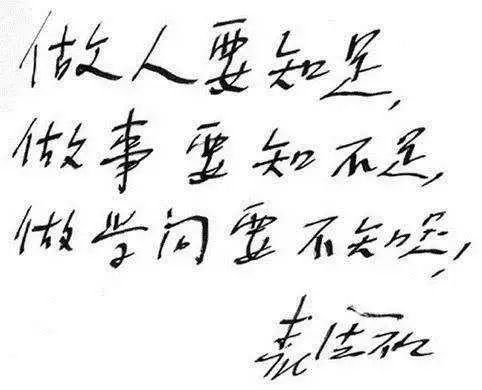 做人要知足,
做事要知不足,
做学问要不知足,
袁隆平